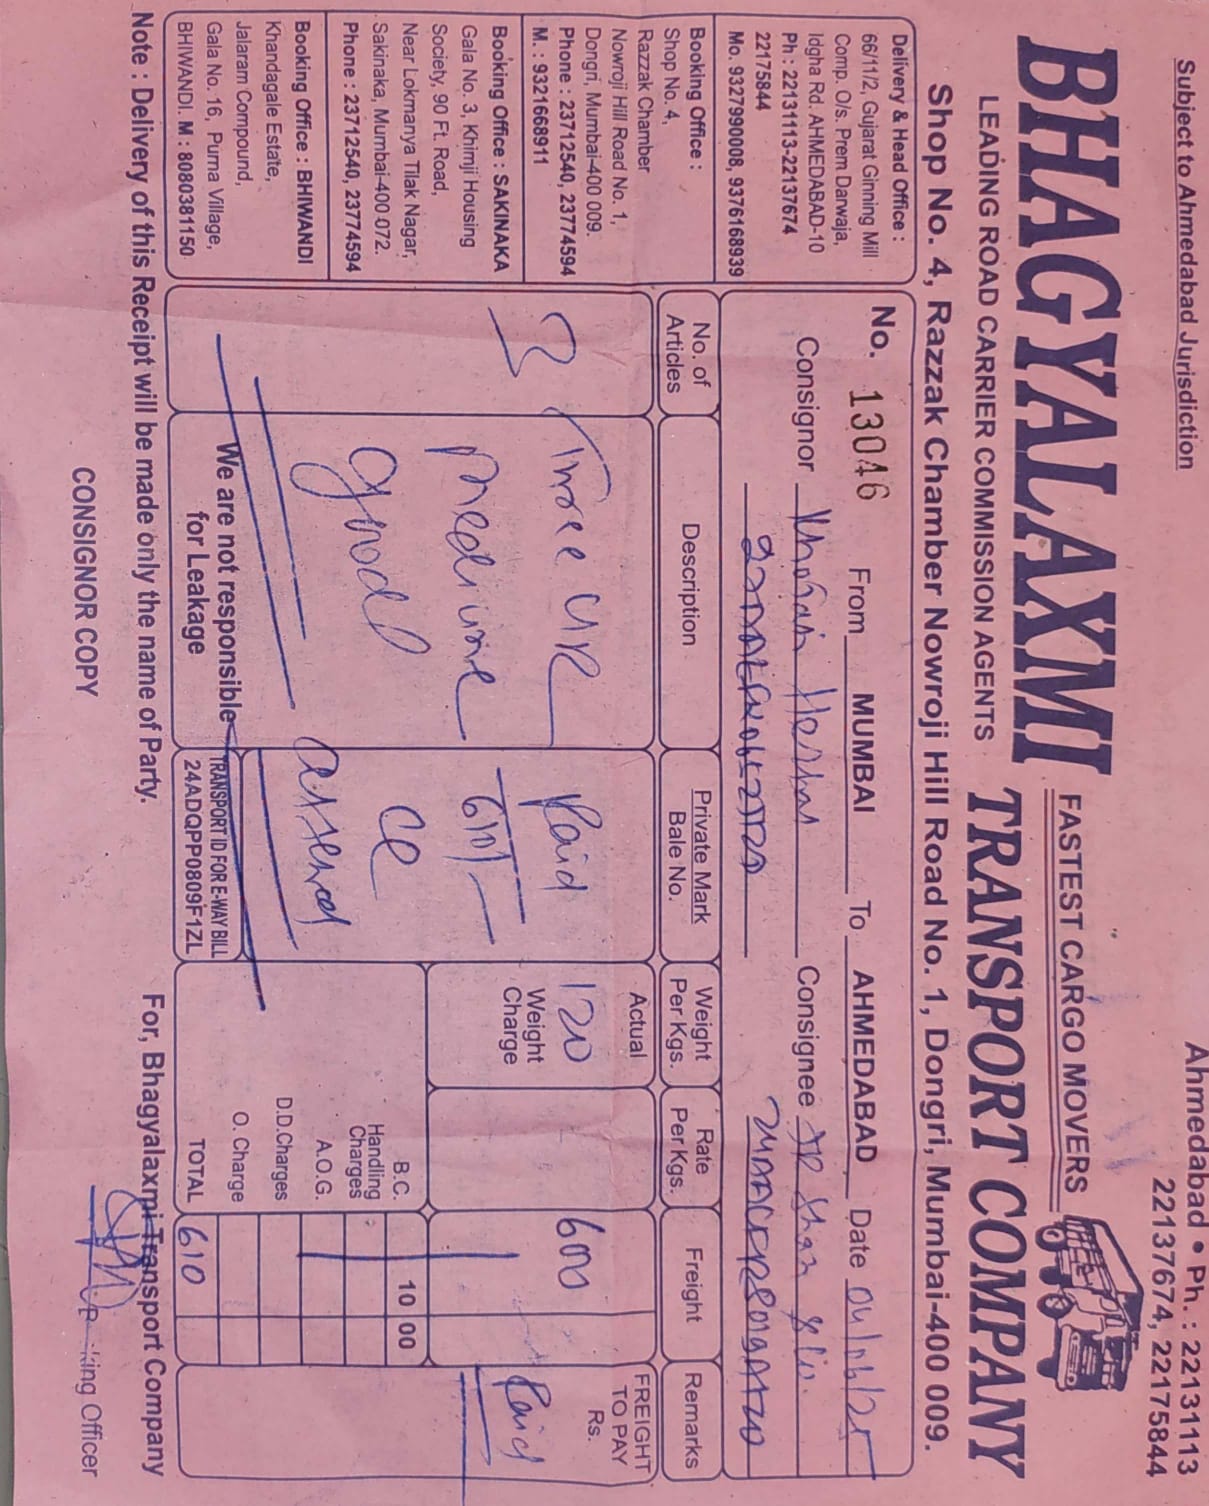 Subject to Ahmedabad Jurisdiction
Ahmedabad • Ph. : 22131113
22137674, 22175844
BHAGYALAXMI
FASTEST CARGO MOVERS
TRANSPORT COMPANY
LEADING ROAD CARRIER COMMISSION AGENTS
Shop No. 4, Razzak Chamber Nowroji Hill Road No. 1, Dongri, Mumbai-400 009.
Delivery & Head Office :
66/11/2, Gujarat Ginning Mill
Comp. O/s. Prem Darwaja,
Idgha Rd. AHMEDABAD-10
Ph : 22131113-22137674
22175844
Mo. 9327990008, 9376168939
Booking Office :
Shop No. 4,
Razzak Chamber
Nowroji Hill Road No. 1,
Dongri, Mumbai-400 009.
Phone : 23712540, 23774594
M. : 9321668911
Booking Office : SAKINAKA
Gala No. 3, Khimji Housing
Society, 90 Ft. Road,
Near Lokmanya Tilak Nagar,
Sakinaka, Mumbai-400 072.
Phone : 23712540, 23774594
Booking Office : BHIWANDI
Khandagale Estate,
Jalaram Compound,
Gala No. 16, Purna Village,
BHIWANDI. M : 8080381150
No. 13046 From MUMBAI To AHMEDABAD Date
Consignor
Consignee
No. of Articles
Description
Private Mark
Bale No.
Weight Per Kgs.
Rate Per Kgs.
Freight
Remarks
3
Three
medicine
good
Paid
610/-
Actual
120
Weight Charge
600
FREIGHT TO PAY Rs.
Paid
B.C. 10 00
Handling Charges
A.O.G.
D.D.Charges
O. Charge
TOTAL 610
We are not responsible for Leakage
TRANSPORT ID FOR E-WAY BILL
24ADQPP0809F1ZL
Note : Delivery of this Receipt will be made only the name of Party.
For, Bhagyalaxmi Transport Company
CONSIGNOR COPY
Officer